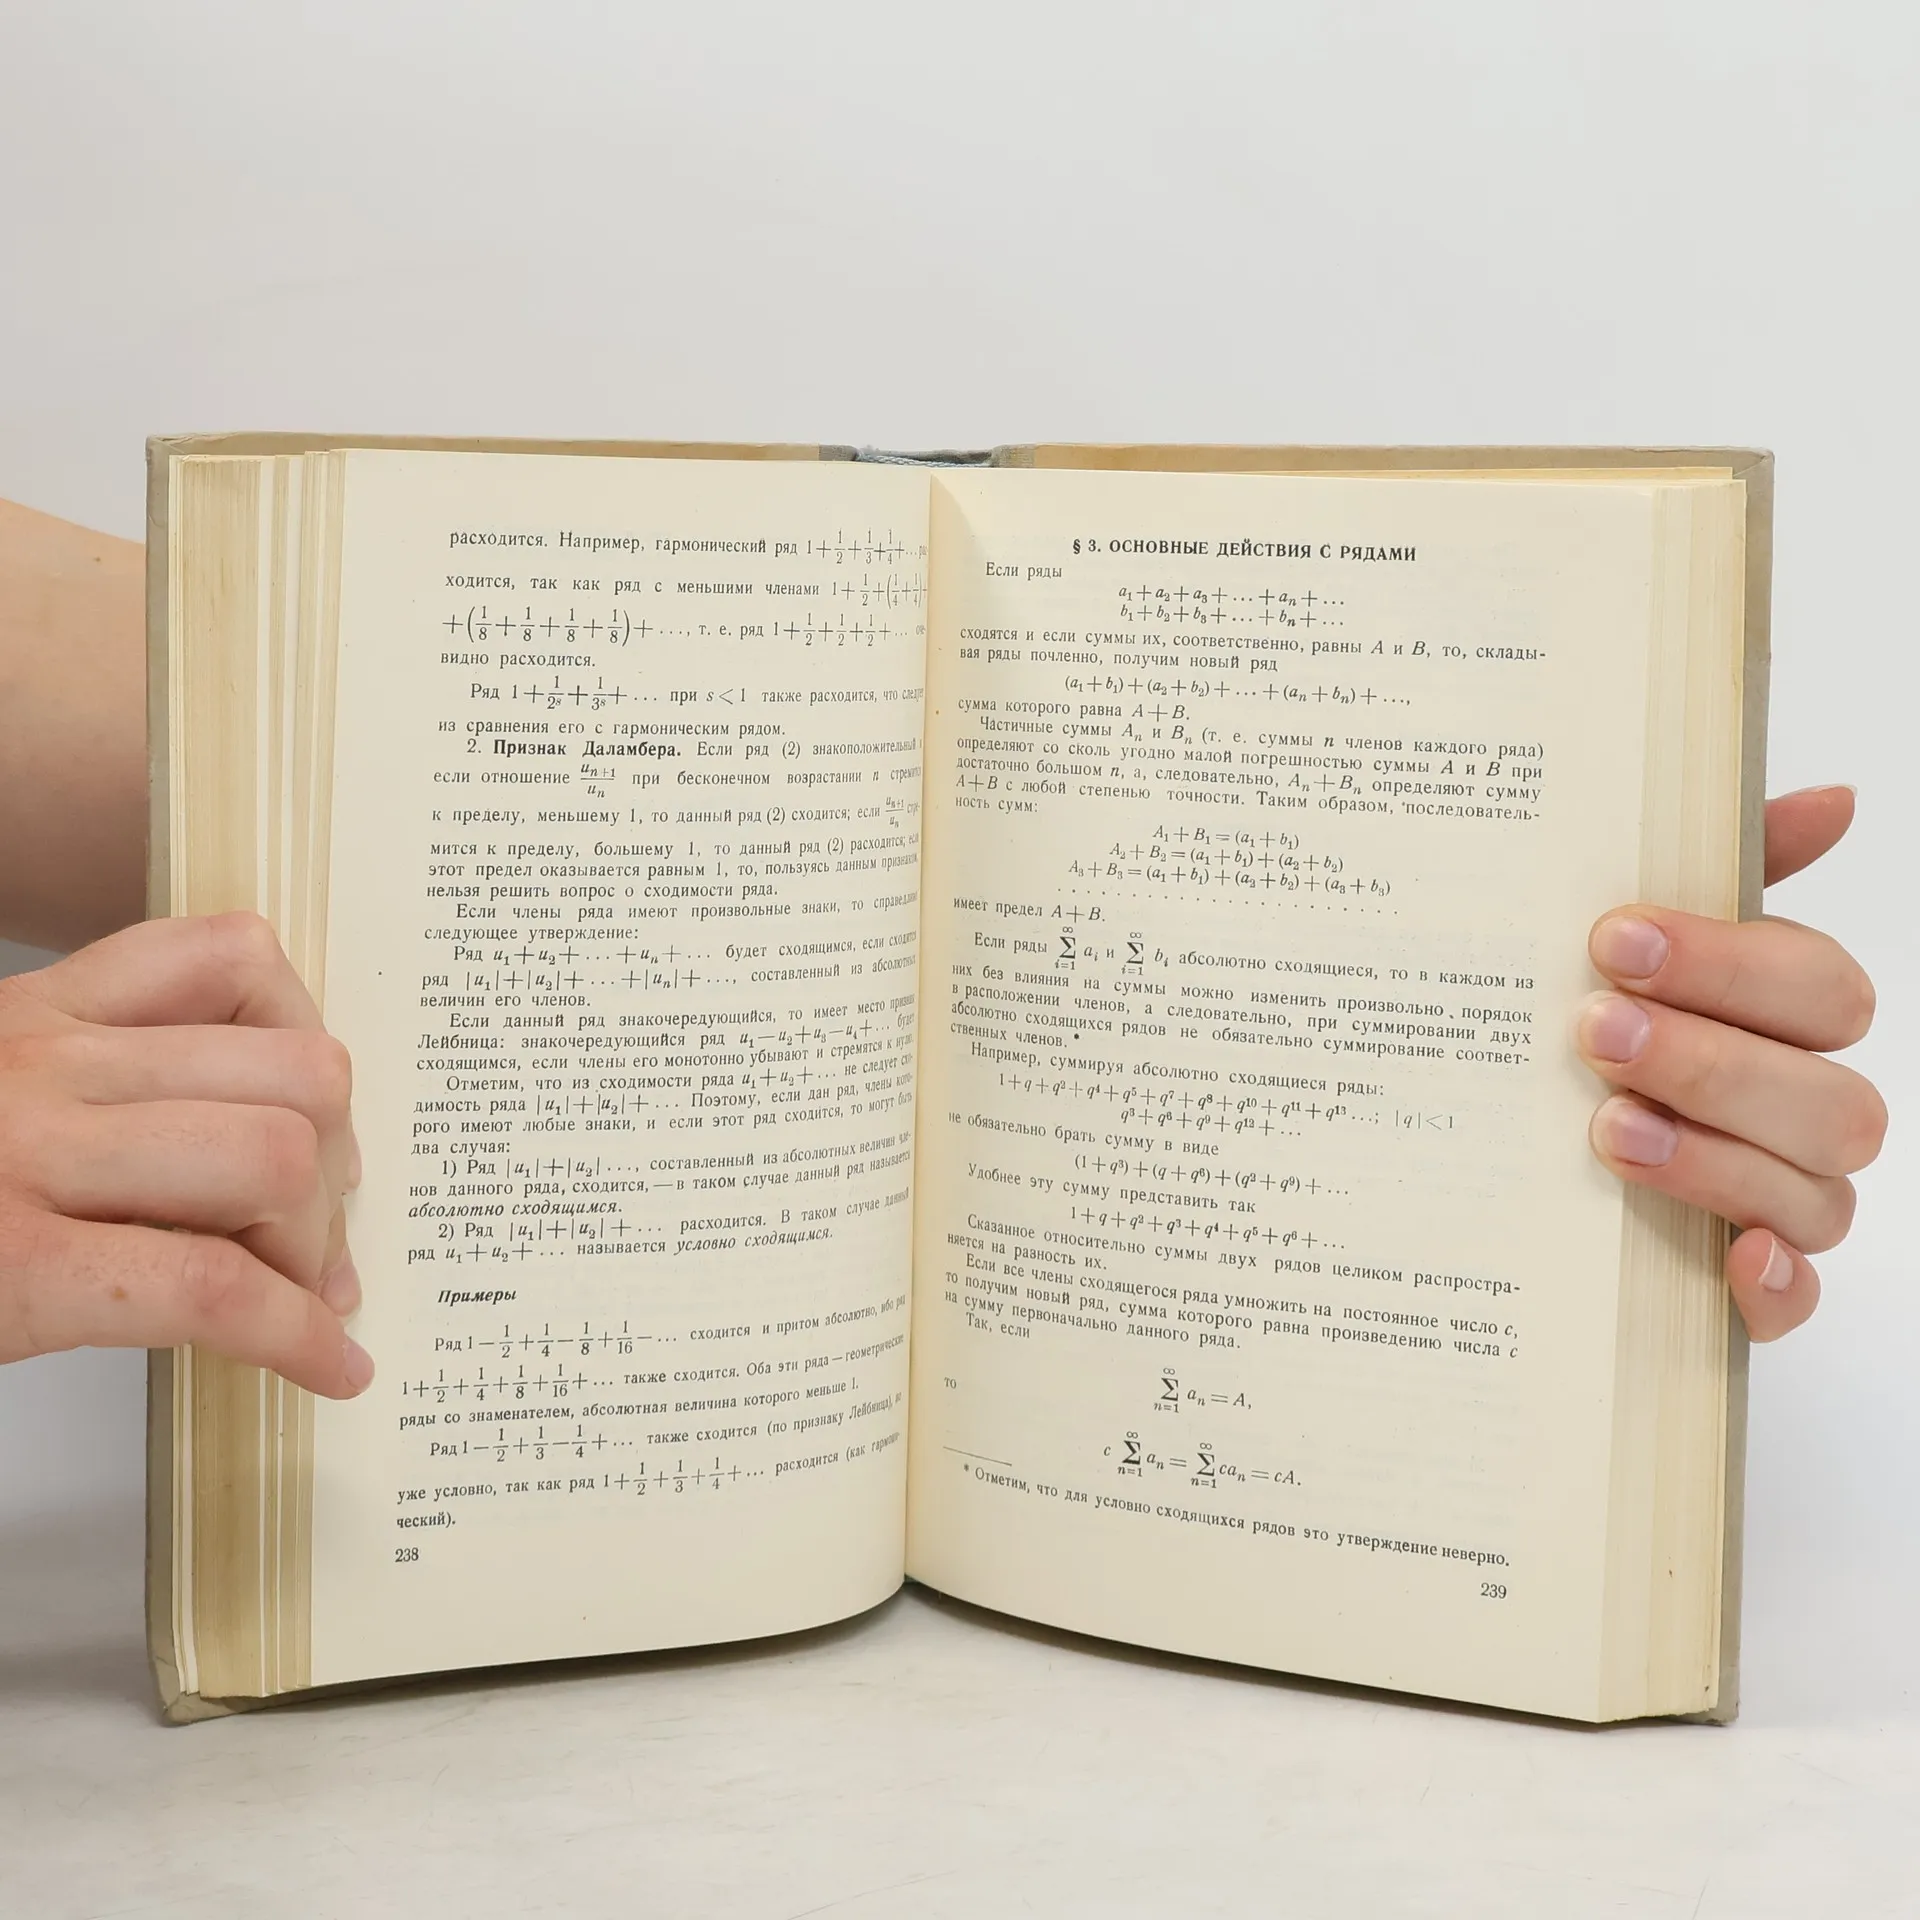 расходится. Например, гармонический ряд 1 + 1/2 + 1/3 + 1/4 + ...
ходится, так как ряд с меньшими членами 1 + 1/2 + (1/4 + 1/4) +
+ (1/8 + 1/8 + 1/8 + 1/8) + ..., т. е. ряд 1 + 1/2 + 1/2 + 1/2 + ... оче-
видно расходится.
Ряд 1 + 1/2ˢ + 1/3ˢ + ... при s < 1 также расходится, что следует
из сравнения его с гармоническим рядом.
2. Признак Даламбера. Если ряд (2) знакоположительный и
если отношение uₙ₊₁/uₙ при бесконечном возрастании n стремится
к пределу, меньшему 1, то данный ряд (2) сходится; если uₙ₊₁/uₙ стре-
мится к пределу, большему 1, то данный ряд (2) расходится; если
этот предел оказывается равным 1, то, пользуясь данным признаком,
нельзя решить вопрос о сходимости ряда.
Если члены ряда имеют произвольные знаки, то справедливо
следующее утверждение:
Ряд u₁ + u₂ + ... + uₙ + ... будет сходящимся, если сходится
ряд |u₁| + |u₂| + ... + |uₙ| + ..., составленный из абсолютных
величин его членов.
Если данный ряд знакочередующийся, то имеет место признак
Лейбница: знакочередующийся ряд u₁ — u₂ + u₃ — u₄ + ... будет
сходящимся, если члены его монотонно убывают и стремятся к нулю.
Отметим, что из сходимости ряда u₁ + u₂ + ... не следует схо-
димость ряда |u₁| + |u₂| + ... Поэтому, если дан ряд, члены кото-
рого имеют любые знаки, и если этот ряд сходится, то могут быть
два случая:
1) Ряд |u₁| + |u₂| ..., составленный из абсолютных величин чле-
нов данного ряда, сходится, — в таком случае данный ряд называется
абсолютно сходящимся.
2) Ряд |u₁| + |u₂| + ... расходится. В таком случае данный
ряд u₁ + u₂ + ... называется условно сходящимся.
Примеры
Ряд 1 — 1/2 + 1/4 — 1/8 + 1/16 — ... сходится и притом абсолютно, ибо ряд
1 + 1/2 + 1/4 + 1/8 + 1/16 + ... также сходится. Оба эти ряда — геометрические
ряды со знаменателем, абсолютная величина которого меньше 1.
Ряд 1 — 1/2 + 1/3 — 1/4 + ... также сходится (по признаку Лейбница), но
уже условно, так как ряд 1 + 1/2 + 1/3 + 1/4 + ... расходится (как гармони-
ческий).
238
§ 3. ОСНОВНЫЕ ДЕЙСТВИЯ С РЯДАМИ
Если ряды
a₁ + a₂ + a₃ + ... + aₙ + ...
b₁ + b₂ + b₃ + ... + bₙ + ...
сходятся и если суммы их, соответственно, равны A и B, то, склады-
вая ряды почленно, получим новый ряд
(a₁ + b₁) + (a₂ + b₂) + ... + (aₙ + bₙ) + ...,
сумма которого равна A + B.
Частичные суммы Aₙ и Bₙ (т. е. суммы n членов каждого ряда)
определяют со сколь угодно малой погрешностью суммы A и B при
достаточно большом n, а, следовательно, Aₙ + Bₙ определяют сумму
A + B с любой степенью точности. Таким образом, последователь-
ность сумм:
A₁ + B₁ = (a₁ + b₁)
A₂ + B₂ = (a₁ + b₁) + (a₂ + b₂)
A₃ + B₃ = (a₁ + b₁) + (a₂ + b₂) + (a₃ + b₃)
. . . . . . . . . . . . . . . . . .
имеет предел A + B.
Если ряды ∞ ∑ i=1 aᵢ и ∞ ∑ i=1 bᵢ абсолютно сходящиеся, то в каждом из
них без влияния на суммы можно изменить произвольно порядок
в расположении членов, а следовательно, при суммировании двух
абсолютно сходящихся рядов не обязательно суммирование соответ-
ственных членов. *
Например, суммируя абсолютно сходящиеся ряды:
1 + q + q² + q⁴ + q⁵ + q⁷ + q⁸ + q¹⁰ + q¹¹ + q¹³ ...; |q| < 1
q³ + q⁶ + q⁹ + q¹² + ...
не обязательно брать сумму в виде
(1 + q³) + (q + q⁶) + (q² + q⁹) + ...
Удобнее эту сумму представить так
1 + q + q² + q³ + q⁴ + q⁵ + q⁶ + ...
Сказанное относительно суммы двух рядов целиком распростра-
няется на разность их.
Если все члены сходящегося ряда умножить на постоянное число c,
то получим новый ряд, сумма которого равна произведению числа c
на сумму первоначально данного ряда.
Так, если
∞ ∑ n=1 aₙ = A,
то
c ∞ ∑ n=1 aₙ = ∞ ∑ n=1 caₙ = cA.
* Отметим, что для условно сходящихся рядов это утверждение неверно.
239